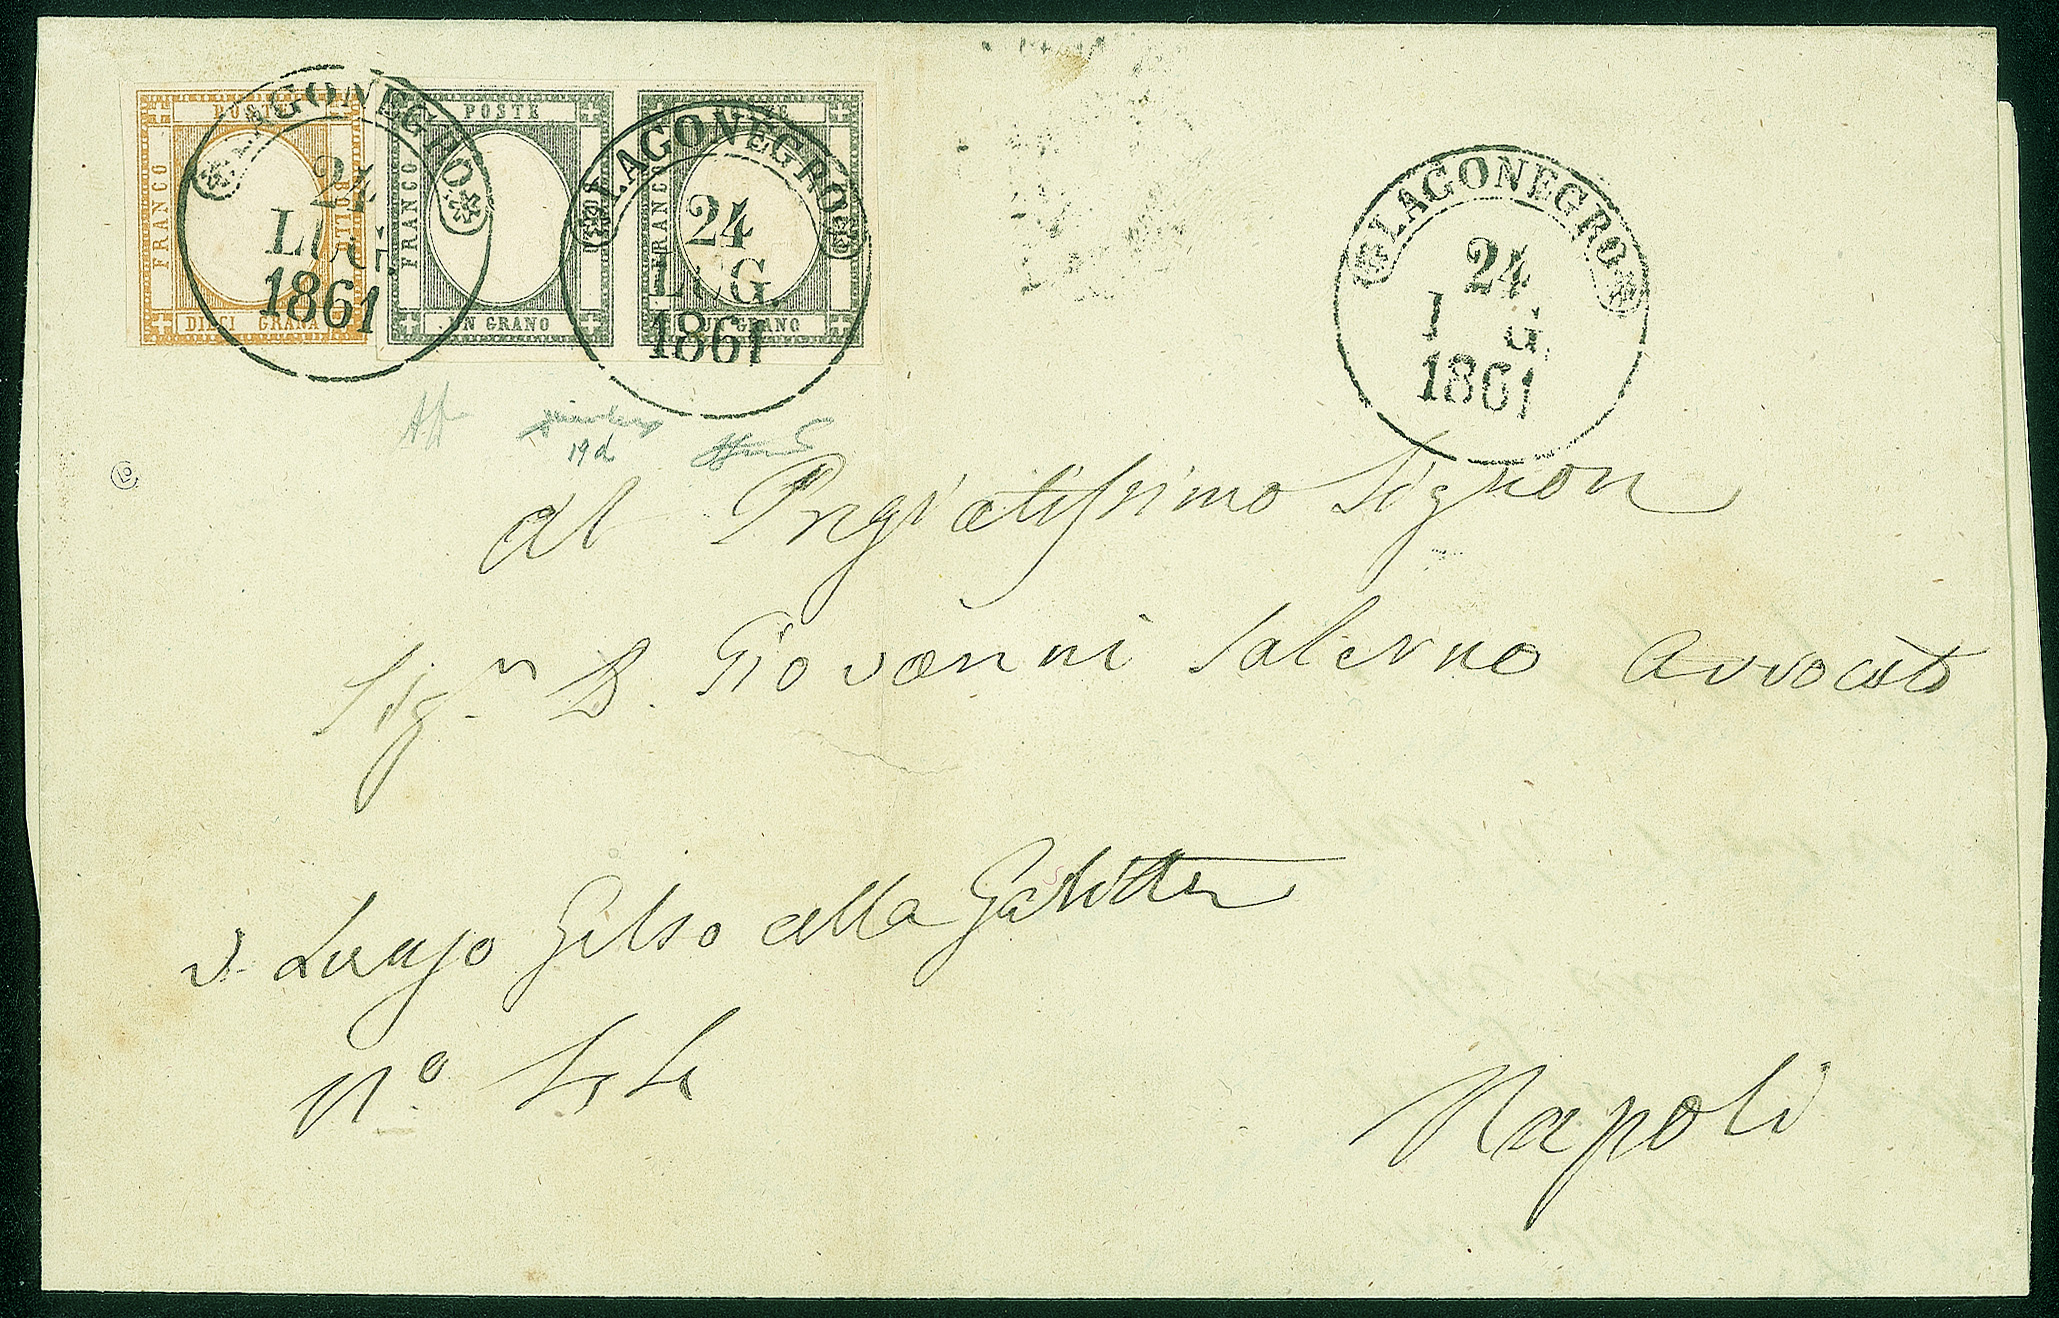 POSTE
FRANCO
BOLLO
DIECI GRANA
POSTE
FRANCO
UN GRANO
POSTE
FRANCO
UN GRANO
LAGONEGRO
24
LUG.
1861
LAGONEGRO
24
LUG.
1861
LAGONEGRO
24
L G.
1861
19d
Al Pregiatissimo Signor
Sig.r D. Giovanni Salerno Avvocato
Gelso alla
N.o
Napoli